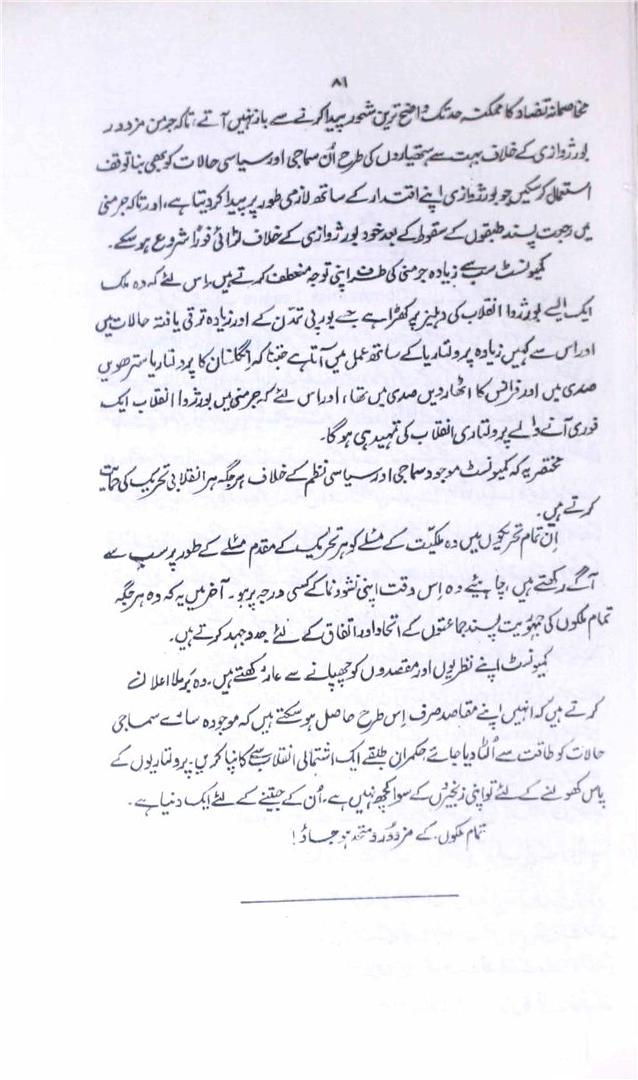 ۸۱
مخاصمانہ تضاد کا ممکنہ حد تک واضح ترین شعور پیدا کرنے سے باز نہیں آتے، تاکہ جرمن مزدور
بورژوازی کے خلاف بہت سے ہتھیاروں کی طرح اُن سماجی اور سیاسی حالات کو بھی بنا توقف
استعمال کر سکیں جو بورژوازی اپنے اقتدار کے ساتھ لازمی طور پر پیدا کر دیتا ہے، اور تاکہ جرمنی
میں رجعت پسند طبقوں کے سقوط کے بعد خود بورژوازی کے خلاف لڑائی فوراً شروع ہو سکے۔
کمیونسٹ سب سے زیادہ جرمنی کی طرف اپنی توجہ منعطف کرتے ہیں، اس لئے کہ وہ ملک
ایک ایسے بورژوا انقلاب کی دہلیز پر کھڑا ہے جسے یورپی تمدن کے اور زیادہ ترقی یافتہ حالات میں
اور اس سے کہیں زیادہ پرولتاریا کے ساتھ عمل میں آتا ہے جتنا کہ انگلستان کا پرولتاریا سترھویں
صدی میں اور فرانس کا اٹھاردیں صدی میں تھا، اور اس لئے کہ جرمنی میں بورژوا انقلاب ایک
فوری آنے والے پرولتاری انقلاب کی تمہید ہی ہوگا۔
مختصر یہ کہ کمیونسٹ موجود سماجی اور سیاسی نظم کے خلاف ہر جگہ ہر انقلابی تحریک کی حمایت
کرتے ہیں۔
اِن تمام تحریکوں میں وہ ملکیّت کے مسئلے کو ہر تحریک کے مقدم مسئلے کے طور پر سب سے
آگے رکھتے ہیں، چاہیئے وہ اِس وقت اپنی نشوونما کے کسی درجہ پر ہو۔ آخر میں یہ کہ وہ ہر جگہ
تمام ملکوں کی جمہوریت پسند جماعتوں کے اتحاد اور اتفاق کے لئے جدوجہد کرتے ہیں۔
کمیونسٹ اپنے نظریوں اور مقصدوں کو چھپانے سے عار رکھتے ہیں۔ وہ برملا اعلان
کرتے ہیں کہ انہیں اپنے مقاصد صرف اِس طرح حاصل ہو سکتے ہیں کہ موجودہ سارے سماجی
حالات کو طاقت سے اُلٹا دیا جائے، حکمران طبقے ایک اشتمالی انقلاب سے کانپا کریں۔ پرولتاریوں کے
پاس کھولنے کے لئے تو اپنی زنجیروں کے سوا کچھ نہیں ہے۔ اُن کے جیتنے کے لئے ایک دنیا ہے۔
تمام ملکوں کے مزدورو متحد ہو جاؤ!